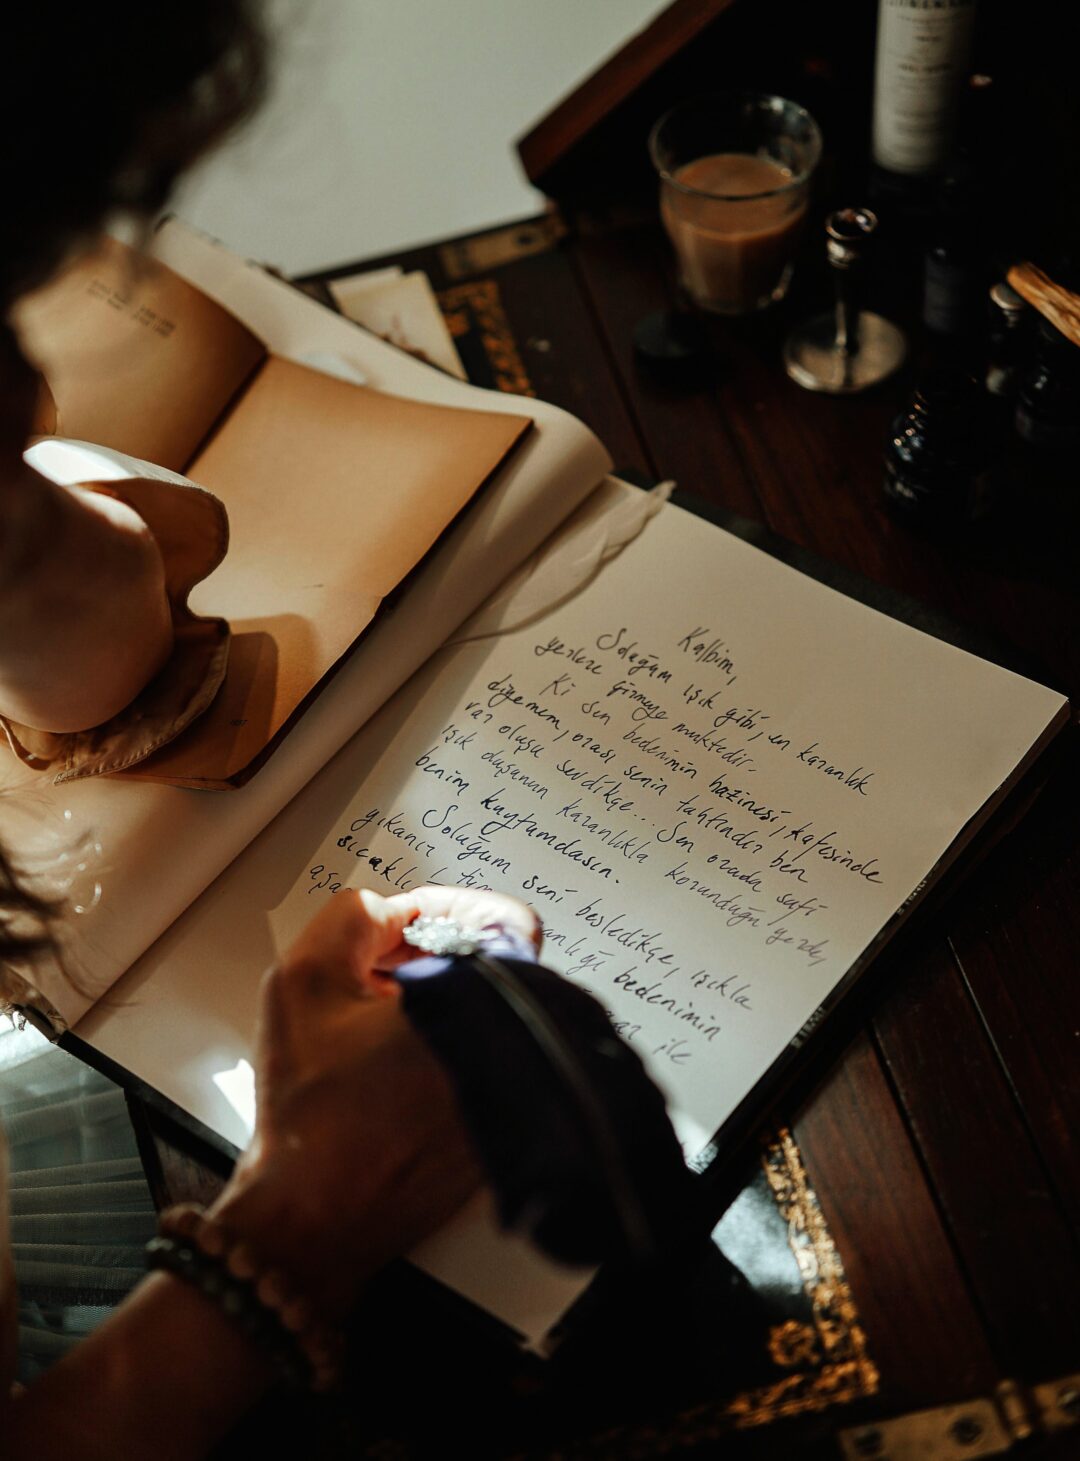 Kalbim,
Soluğum ışık gibi, en karanlık
yerlere girmeye muktedir.
Ki sen bedenimin hazinesi, kafesinde
diyemem, orası senin tahtındır ben
var oluşu sevdikçe... Sen orada safi
ışık duşunun karanlıkla korunduğu yerde,
benim kuytumdasın.
Soluğum seni besledikçe, ışıkla
yıkanır tüm bedenimin
sıcaklı ile